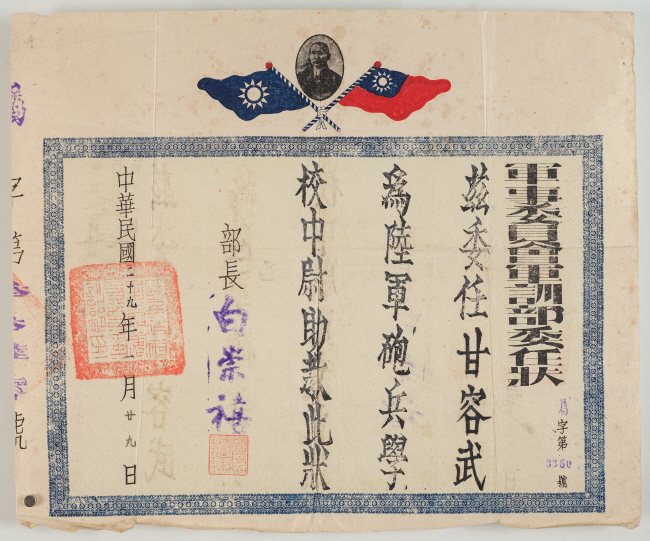 軍事委員會軍訓部委任狀
字第3350號
茲委任甘容武
為陸軍砲兵學
校中尉助教此狀
部長
白崇禧
中華民國二十九年一月廿九日
號